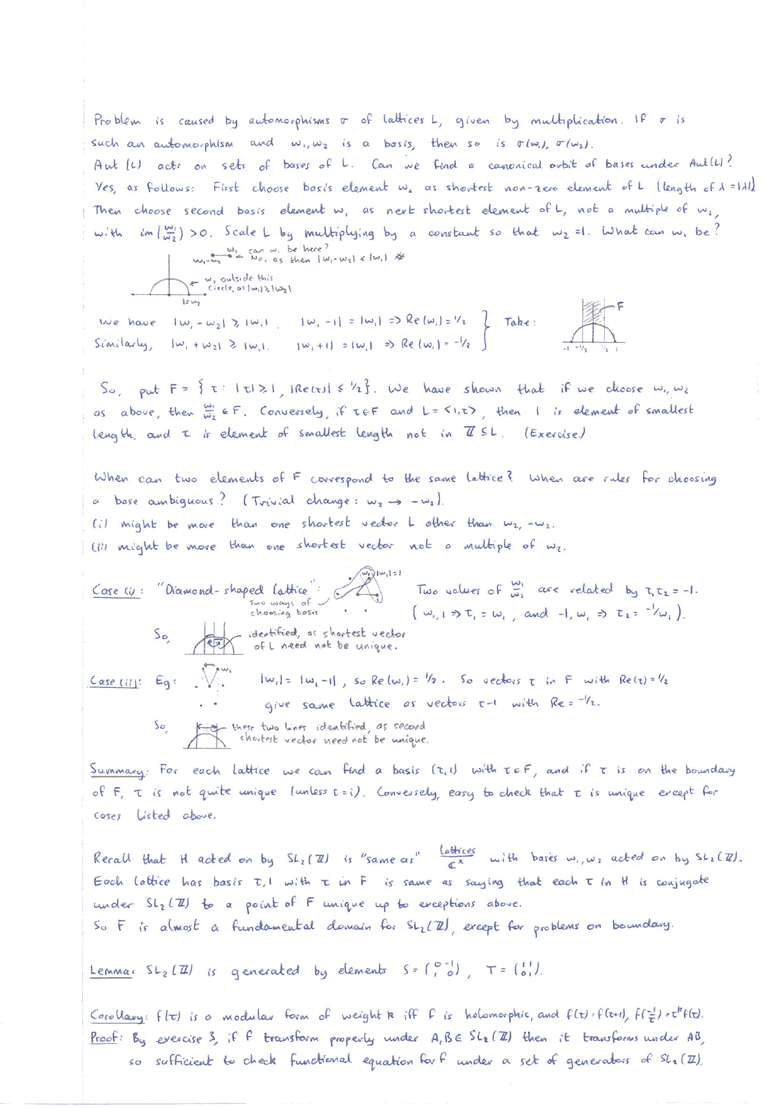 Problem is caused by automorphisms σ of lattices L, given by multiplication. If σ is
such an automorphism and w₁,w₂ is a basis, then so is σ(w₁), σ(w₂).
Aut(L) acts on sets of bases of L. Can we find a canonical orbit of bases under Aut(L)?
Yes, as follows: First choose basis element w₂ as shortest non-zero element of L (length of λ = |λ|)
Then choose second basis element w₁ as next shortest element of L, not a multiple of w₂,
with im(w₁/w₂) > 0. Scale L by multiplying by a constant so that w₂ = 1. What can w₁ be?
w₁ can w₁ be here?
w₁-w₂ No, as then |w₁-w₂| < |w₁| ※
w₁ outside this
circle, as |w₁| ≥ |w₂|
1=w₂
We have |w₁ - w₂| ≥ |w₁|. |w₁ - 1| = |w₁| => Re(w₁) = 1/2 } Take: F
Similarly, |w₁ + w₂| ≥ |w₁|. |w₁ + 1| = |w₁| => Re(w₁) = -1/2
-1 -1/2 1/2 1
So, put F = { τ : |τ| ≥ 1, |Re(τ)| ≤ 1/2 }. We have shown that if we choose w₁, w₂
as above, then w₁/w₂ ∈ F. Conversely, if τ∈F and L = <1,τ>, then 1 is element of smallest
length, and τ is element of smallest length not in ℤ ⊆ L. (Exercise.)
When can two elements of F correspond to the same lattice? When are rules for choosing
a base ambiguous? (Trivial change: w₂ → -w₂).
(i) might be more than one shortest vector L other than w₂, -w₂.
(ii) might be more than one shortest vector not a multiple of w₂.
Case (i): "Diamond-shaped lattice": |w₁|=1 Two values of w₁/w₂ are related by τ₁τ₂ = -1.
Two ways of
choosing basis (w₁,1 => τ₁ = w₁, and -1,w₁ => τ₂ = -1/w₁).
So, identified, as shortest vector
of L need not be unique.
Case (ii): Eg: w₁ |w₁| = |w₁-1|, so Re(w₁) = 1/2. So vectors τ in F with Re(τ) = 1/2
give same lattice as vectors τ-1 with Re = -1/2.
So, these two lines identified, as second
shortest vector need not be unique.
Summary: For each lattice we can find a basis (τ,1) with τ∈F, and if τ is on the boundary
of F, τ is not quite unique (unless τ=i). Conversely, easy to check that τ is unique except for
cases listed above.
Recall that H acted on by SL₂(ℤ) is "same as" lattices/ℂˣ with bases w₁,w₂ acted on by SL₂(ℤ).
Each lattice has basis τ,1 with τ in F is same as saying that each τ in H is conjugate
under SL₂(ℤ) to a point of F unique up to exceptions above.
So F is almost a fundamental domain for SL₂(ℤ), except for problems on boundary.
Lemma: SL₂(ℤ) is generated by elements S = (0 -1; 1 0), T = (1 1; 0 1).
Corollary: f(τ) is a modular form of weight k iff f is holomorphic, and f(τ) = f(τ+1), f(-1/τ) = τᵏf(τ).
Proof: By exercise 3, if f transform properly under A,B ∈ SL₂(ℤ) then it transforms under AB,
so sufficient to check functional equation for f under a set of generators of SL₂(ℤ).